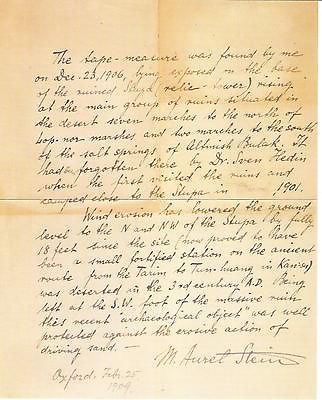 The tape-measure was found by me
on Dec. 23, 1906, lying exposed on the base
of the ruined Stupa (relic-tower) rising
at the main group of ruins situated in
the desert seven marches to the north of
Lop-nor marshes and two marches to the south
of the salt springs of Altmish Bulak. It
had forgotten there by Dr. Sven Hedin
when the first visited the ruins and
camped close to the Stupa in 1901.
Wind erosion has lowered the ground
level to the N and NW of the Stupa by fully
18 feet since the site (now proved to have
been a small fortified station on the ancient
route from the Tarim to Tun-huang in Kansu)
was deserted in the 3rd century A.D. Being
left at the S.W. foot of the massive ruin
this recent "archaeological object" was well
protected against the erosive action of
driving sand. —
M. Aurel Stein
Oxford. Feb. 25
1909.